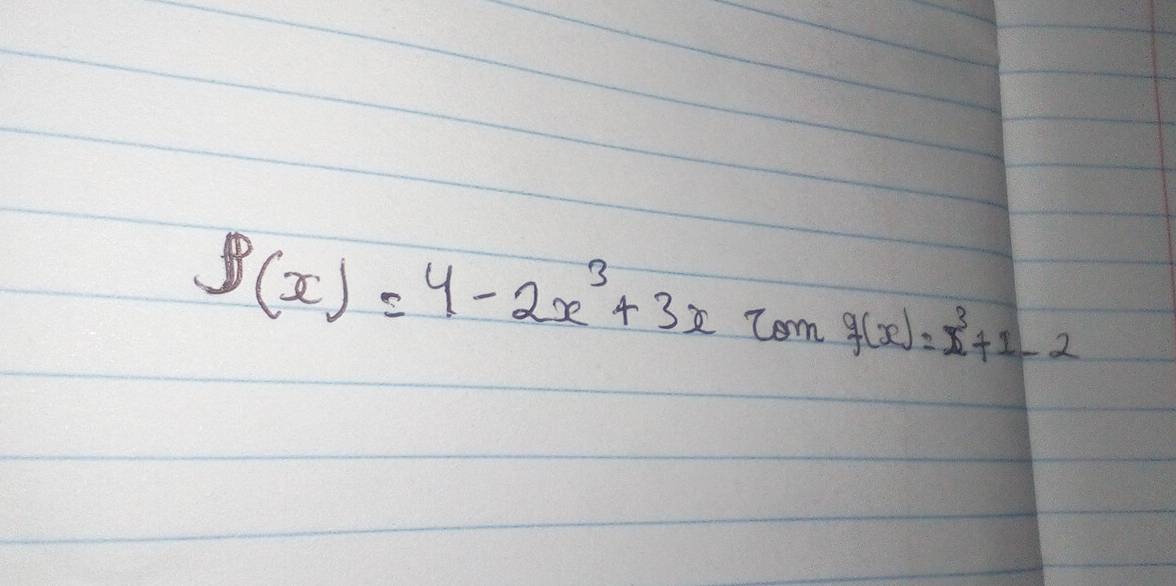 P(x) = 4 - 2x³ + 3x com g(x) = x³ + x - 2